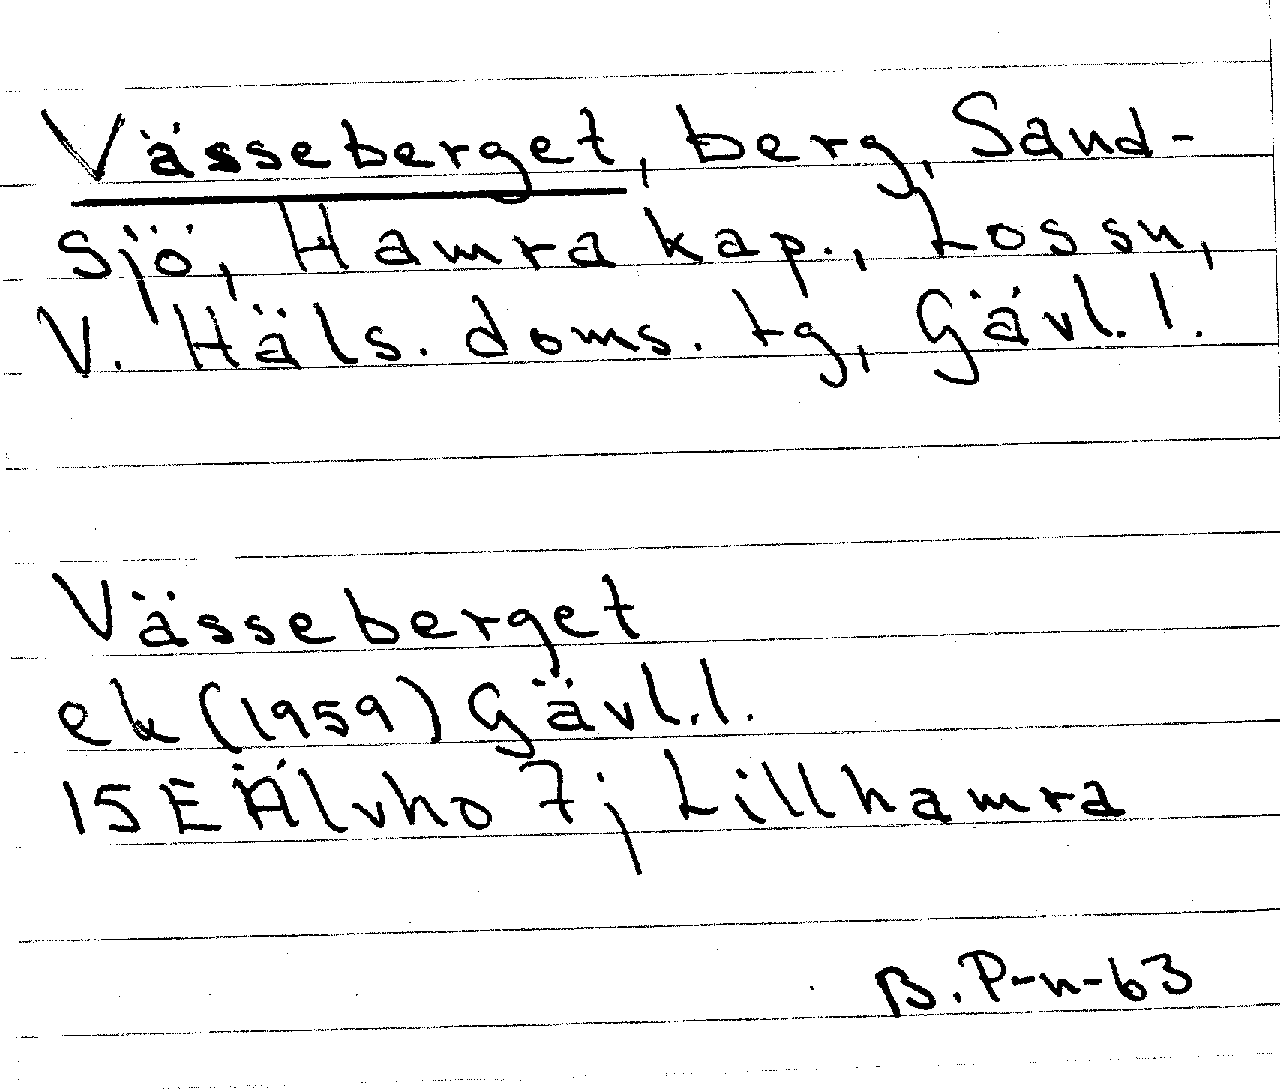 Vässeberget, berg, Sand-
sjö, Hamra kap., Lossn,
V. Häls. doms. tg, Gävl. l.
Vässeberget
ek (1959) Gävl. l.
15E Älvho 7j Lillhamra
B. P-n-63